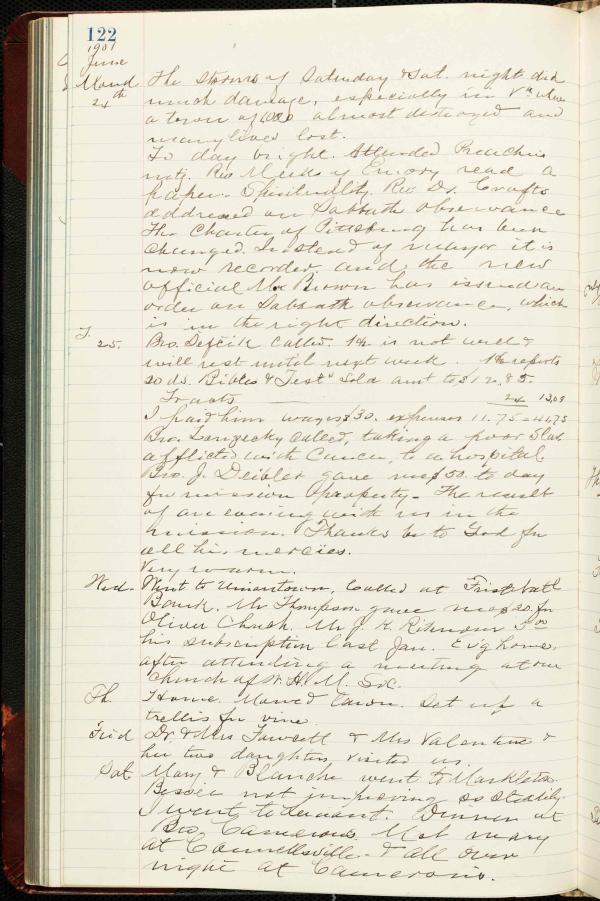 122
1901
June
Mond. The storms of Saturday & Sat. night did
24th much damage, especially in Va where
a town of 1000 almost destroyed and
many lives lost.
To day bright. Attended Preachers
mtg. Rev. Meeks of Emory read a
paper - Spirituality. Rev. Dr. Crafts
addressed on Sabbath observance
The Charter of Pittsburg has been
changed. Instead of mayor it is
now recorder and the new
official Mr Brown has issued an
order on Sabbath observance, which
is in the right direction.
T. 25. Bro. called. He is not well &
will rest until next week. He reports
20 ds. Bibles & Tests sold amt to $12.85.
Tracts 24 13,09
I paid him wages $30. expenses 11.75 = 41,75
Bro. called, taking a poor Slav
afflicted with Cancer, to a hospital.
Bro. J. Deibler gave me $50. to day
for mission property - The result
of an evening with us in the
mission. Thanks be to God for
all his mercies.
Very warm.
Wed. Went to Uniontown. Called at First Natl
Bank. Mr Thompson gave me $20. for
Oliver Church. Mr J. K. 5.00
his subscription last Jan. Evg home.
after attending a meeting at our
Church of W. H. M. Soc.
Th. Home. Mowed lawn. Set up a
trellis for vine.
Frid Dr. & Mrs Fawcett & Mrs Valentine &
her two daughters visited us.
Sat. Mary & Blanche went to Markleton.
Bessie not improving so steadily.
I went to Dinner at
Bro. Camerons. Met many
at Connellsville - & all over
night at Camerons.